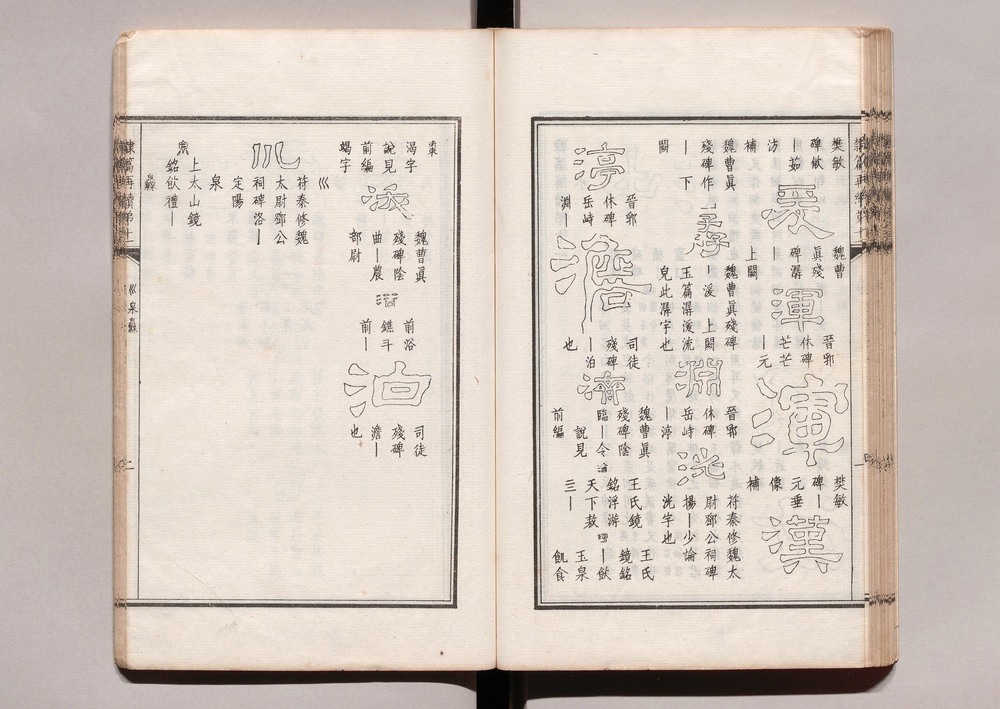 樊敏
碑敏
—茹
汸
補
魏曹
眞殘
碑潺
—
上闕
渾
晉郛
休碑
芒芒
—元
樊敏
碑—
元垂
像
補
漢
魏曹眞
殘碑作
—下
闕
潺
魏曹眞殘碑
—湲 上闕
玉篇潺湲流
皃此潺字也
淵
晉郛
休碑
岳峙
—渟
洸
符秦修魏太
尉鄧公祠碑
揚—少論
洸字也
渟
晉郛
休碑
岳峙
淵—
澹
司徒
殘碑
—泊
也
濟
魏曹眞
殘碑陰
臨—令
說見
前編
王氏鏡
銘浮游
天下敖
三—
王氏
鏡銘
—飲
玉泉
飢食
棗
渴字
說見
前編
竭字
魏曹眞
殘碑陰
曲—農
部尉
前浴
鐎斗
前—
泊
司徒
殘碑
澹—
也
巛
川
符秦修魏
太尉鄧公
祠碑洛—
定陽
泉
上太山鏡
銘飲禮—
灥
隸篇再續第十一
巛泉灥